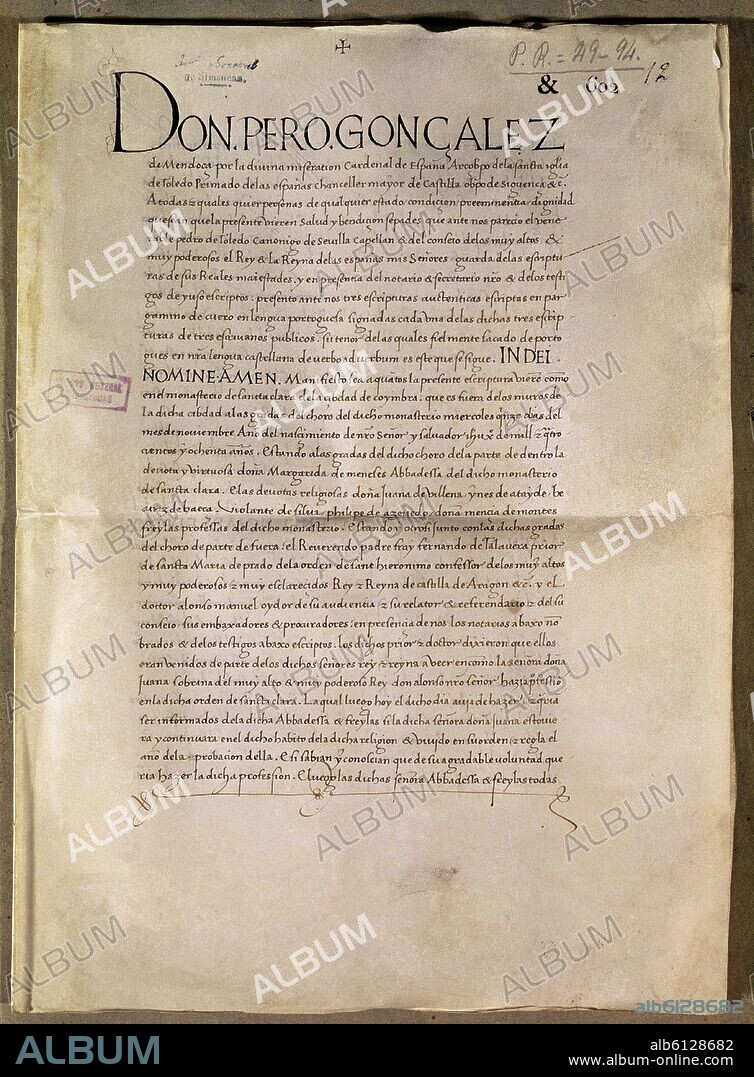 P. R. = 49-94.
12
& 602
DON.PERO.GONÇALEZ
de Mendoça por la divina miseration Cardenal de España Arçobpo dela sancta iglia
de Toledo Primado delas españas chanceller mayor de Castilla obpo de siguença &c.
A todas & quales quier personas de qualquier estado condicion preeminentia & dignidad
que sean que la presente vieren Salud y bendicion sepades que ante nos parecio el vene
rable pedro de Toledo Canonigo de Sevilla Capellan & del conseio delos muy altos &
muy poderosos el Rey & la Reyna delas españas mis Señores guarda delas escriptu
ras de sus Reales maiestades. y en presencia del notario & secretario nro & delos testi
gos de yuso escriptos: presento ante nos tres escripturas autenticas escriptas en par
gamino de cuero en lengua portoguesa signadas cada una delas dichas tres escrip
turas de tres escrivanos publicos. su tenor delas quales fielmente sacado de porto
gues en nra lengua castellana de verbo ad verbum es este que se sigue. IN DEI
NOMINE AMEN. Manifiesto sea a quatos la presente escriptura viere como
en el monasterio de sancta clara dela cibdad de coymbra. que es fuera delos muros de
la dicha cibdad a las gradas del choro del dicho monasterio miercoles qize dias del
mes de noviembre Año del nascimiento de nro Señor y salvador ihu xo de mill & qtro
cientos y ochenta años. Estando a las gradas del dicho choro dela parte de dentro la
devota y virtuosa doña Margarida de meneses Abbadessa del dicho monasterio
de sancta clara. E las devotas religiosas doña Juana de villena ynes de atayde. be
atriz de baeca. Violante de silva philipe de azevedo. doña mencia de montes
freylas professas del dicho monasterio. Estando y otrosi junto con las dichas gradas
del choro de parte de fuera: el Reverendo padre fray fernando de talavera prior
de sancta Maria de prado dela orden de sant hieronimo confessor delos muy altos
y muy poderosos & muy esclarecidos Rey & Reyna de castilla de Aragon &c. y el
doctor alonso manuel oydor de su audientia & su relator & referendario & del su
conseio sus embaxadores & procuradores: en presencia de nos los notarios abaxo no
brados & delos testigos abaxo escriptos. los dichos prior & doctor dixeron que ellos
eran venidos de parte delos dichos señores rey & reyna a veer en como la señora doña
juana sobrina del muy alto & muy poderoso Rey don alonso nro señor hazia pfessio
en la dicha orden de sancta clara. La qual luego hoy el dicho dia avia de hazer: & qria
ser informados dela dicha Abbadessa & freylas si la dicha señora doña Juana estovie
ra y continuara en el dicho habito dela dicha religion & vivido en su orden & regla el
año dela aprobacion della. E si sabian y conoscian que de su agradable voluntad que
ria hazer la dicha profession. E luego las dichas señora Abbadessa & freylas todas
ALBUM
alb6128682
ALBUM
alb6128682
www.album-online.com